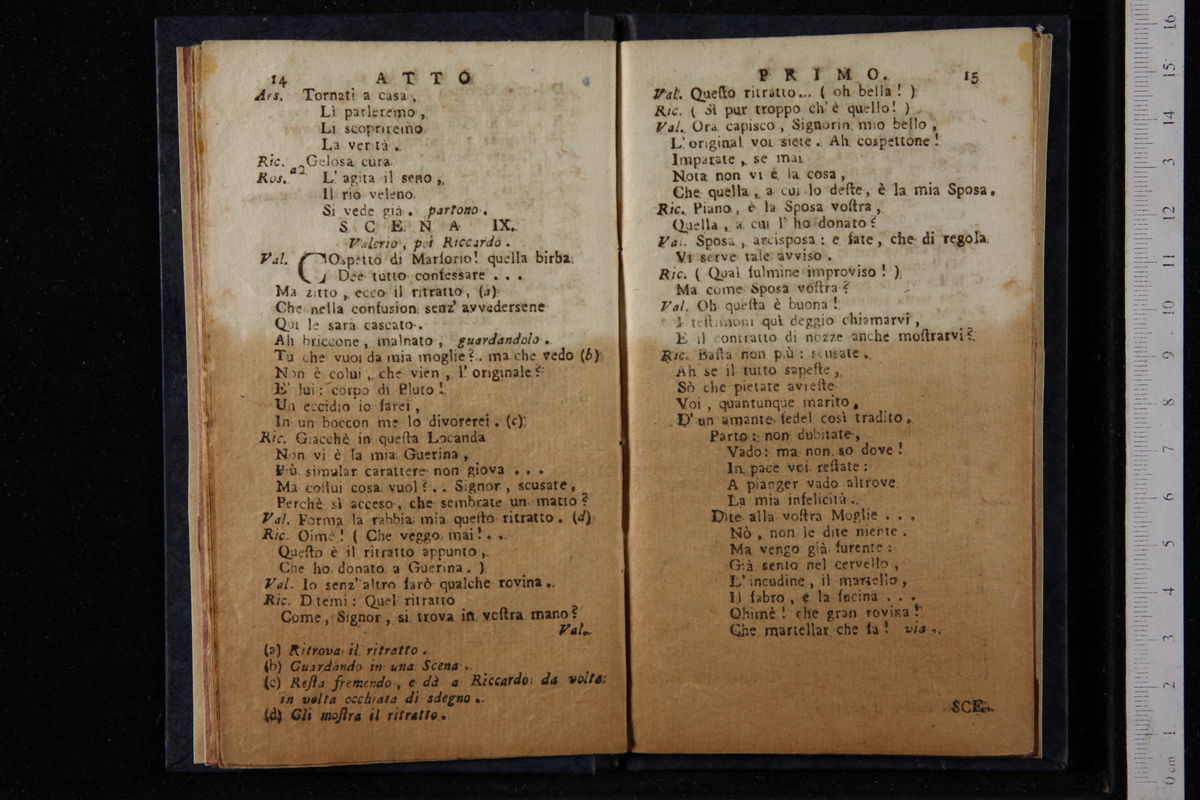 14 ATTO
Ars. Tornati a casa,
Lì parleremo,
Li scopriremo
La verità.
Ric. Gelosa cura
Ros. a2 L'agita il seno,
Il rio veleno
Si vede già. partono.
SCENA IX.
Valerio, poi Riccardo.
Val. COspetto di Marforio! quella birba
Dee tutto confessare...
Ma zitto, ecco il ritratto, (a)
Che nella confusion senz'avvedersene
Qui le sarà cascato.
Ah briccone, malnato, guardandolo.
Tu che vuoi da mia moglie?.. ma che vedo (b)
Non è colui, che vien, l'originale?
E' lui: corpo di Pluto!
Un eccidio io farei,
In un boccon me lo divorerei. (c)
Ric. Giacchè in questa Locanda
Non vi è la mia Guerina,
Più simular carattere non giova...
Ma costui cosa vuol?.. Signor, scusate,
Perchè sì acceso, che sembrate un matto?
Val. Forma la rabbia mia questo ritratto. (d)
Ric. Oimè! ( Che veggo mai!..
Questo è il ritratto appunto,
Che ho donato a Guerina. )
Val. Io senz'altro farò qualche rovina.
Ric. Ditemi: Quel ritratto
Come, Signor, si trova in vostra mano?
Val.
(a) Ritrova il ritratto.
(b) Guardando in una Scena.
(c) Resta fremendo, e dà a Riccardo da volta
in volta occhiata di sdegno.
(d) Gli mostra il ritratto.
PRIMO. 15
Val. Questo ritratto... ( oh bella! )
Ric. ( Sì pur troppo ch'è quello! )
Val. Ora capisco, Signorin mio bello,
L'original voi siete. Ah cospettone!
Imparate, se mai
Nota non vi è la cosa,
Che quella, a cui lo deste, è la mia Sposa.
Ric. Piano, è la Sposa vostra,
Quella, a cui l'ho donato?
Val. Sposa, arcisposa: e fate, che di regola
Vi serve tale avviso.
Ric. ( Qual fulmine improviso! )
Ma come Sposa vostra?
Val. Oh questa è buona!
I testimoni quì deggio chiamarvi,
E il contratto di nozze anche mostrarvi?
Ric. Basta non più: scusate.
Ah se il tutto sapeste,
Sò che pietate avreste
Voi, quantunque marito,
D'un amante fedel così tradito.
Parto: non dubitate,
Vado: ma non so dove!
In pace voi restate:
A pianger vado altrove
La mia infelicità.
Dite alla vostra Moglie...
Nò, non le dite niente.
Ma vengo già furente:
Già sento nel cervello,
L'incudine, il martello,
Il fabro, e la fucina...
Ohimè! che gran rovina!
Che martellar che fa! via.
SCE-